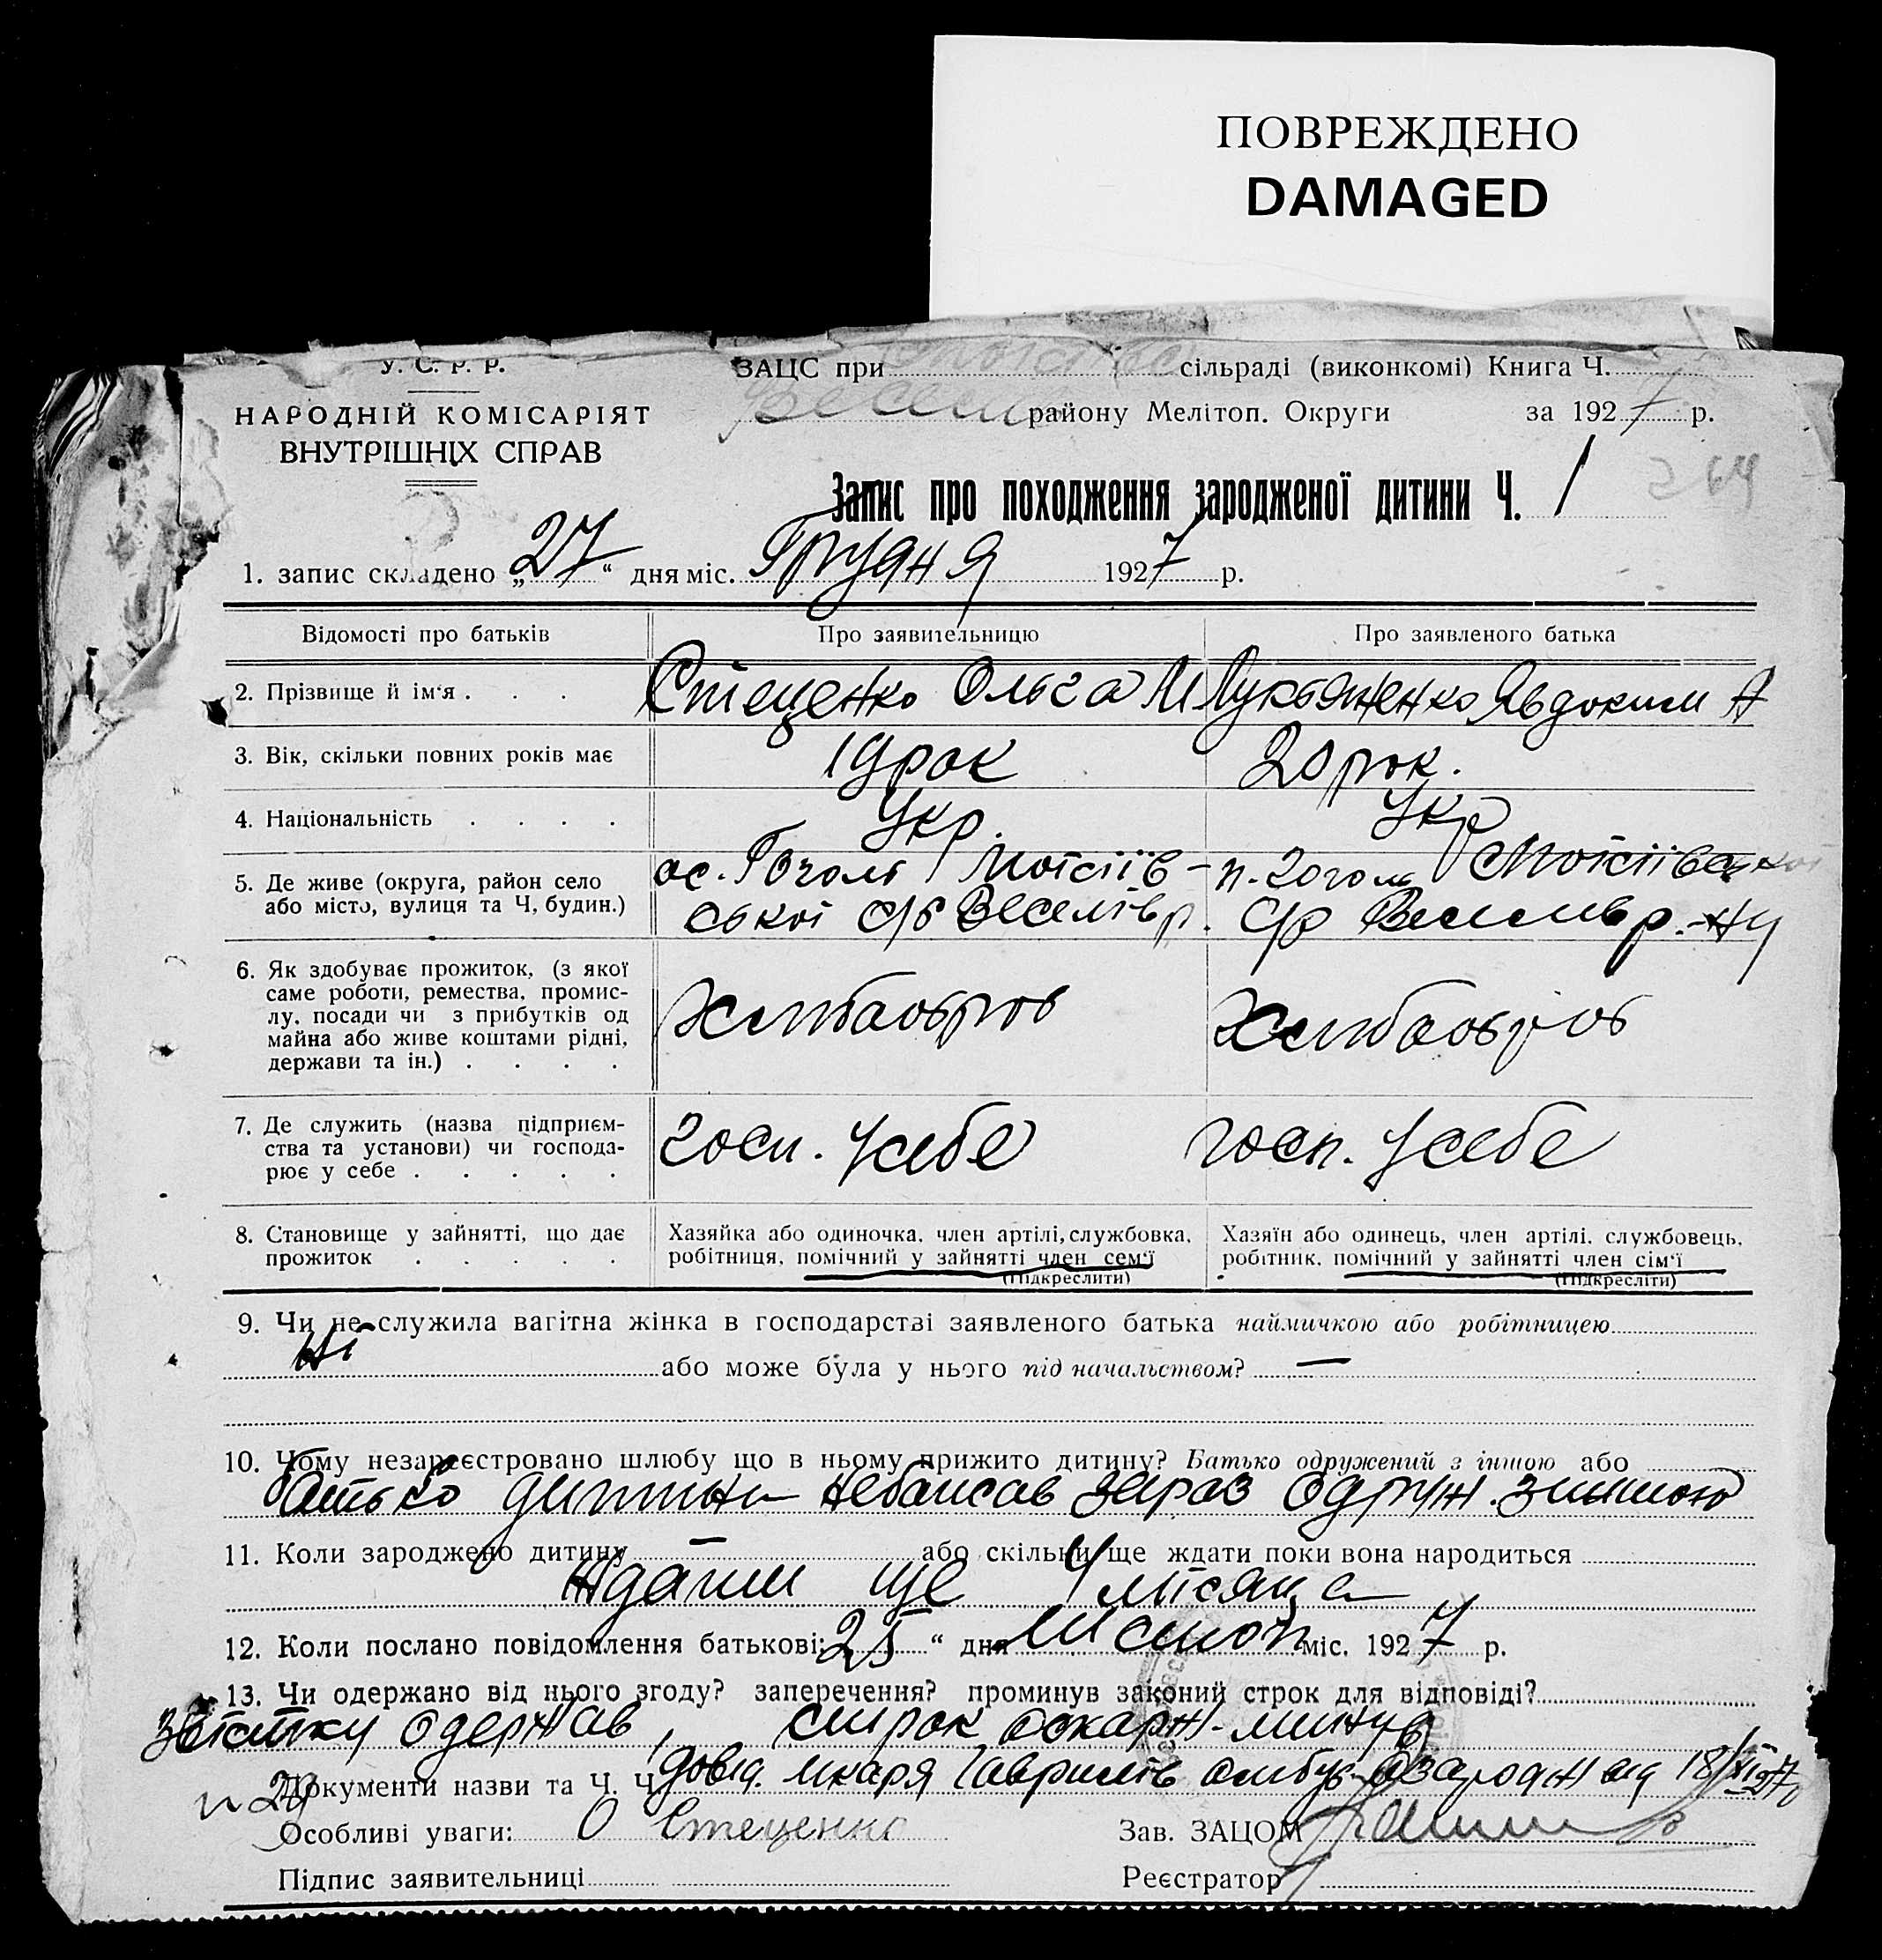 ПОВРЕЖДЕНО
DAMAGED
У. С. Р. Р.
ЗАЦС при сільраді (виконкомі) Книга Ч.
НАРОДНІЙ КОМІСАРІЯТ
ВНУТРІШНІХ СПРАВ
Весел району Мелітоп. Округи за 1927 р.
Запис про походження зародженої дитини Ч. 1
264
1. запис складено „27“ дня міс. Грудня 1927 р.
Відомості про батьків Про заявительницю Про заявленого батька
2. Прізвище й ім'я . . . Стеценко Ольга М Лукьяненко Явдоким А
3. Вік, скільки повних років має 19 рок 20 рок.
4. Національність . . . . Укр. Укр
5. Де живе (округа, район село
або місто, вулиця та Ч, будин.)
ос. Гоголі Мотсіїв-
ської с/р Веселів р.
п. Гоголі Мотсіївської
с/р Веселів р-ну
6. Як здобуває прожиток, (з якої
саме роботи, ремества, промис-
лу, посади чи з прибутків од
майна або живе коштами рідні,
держави та ін.) . . . .
Хлібаоброб
Хлібаоброб
7. Де служить (назва підприєм-
ства та установи) чи господа-
рює у себе . . . . .
госп. у себе
госп. у себе
8. Становище у зайнятті, що дає
прожиток . . . . .
Хазяйка або одиночка, член артілі, службовка,
робітниця, помічний у зайнятті член сем'ї
(Підкреслити)
Хазяїн або одинець, член артілі, службовець,
робітник, помічний у зайнятті член сім'ї
(Підкресліти)
9. Чи не служила вагітна жінка в господарстві заявленого батька наймичкою або робітницею
Ні або може була у нього під начальством? —
10. Чому незареєстровано шлюбу що в ньому прижито дитину? Батько одружений з іншою або
батько дитини небажав зараз одруж. зиншою
11. Коли зароджено дитину — або скільки ще ждати поки вона народиться
Ждати ще 4 місяца
12. Коли послано повідомлення батькові: 25 “ дня Листоп міс. 1927 р.
13. Чи одержано від нього згоду? заперечення? проминув законий строк для відповіді?
звістку одержав, строк оскарж. минув
Документи назви та Ч. Ч. довід. лікаря Гаврилів амбул. від 18/
Особливі уваги: О Стеценко Зав. ЗАЦОМ
Підпис заявительниці Реєстратор